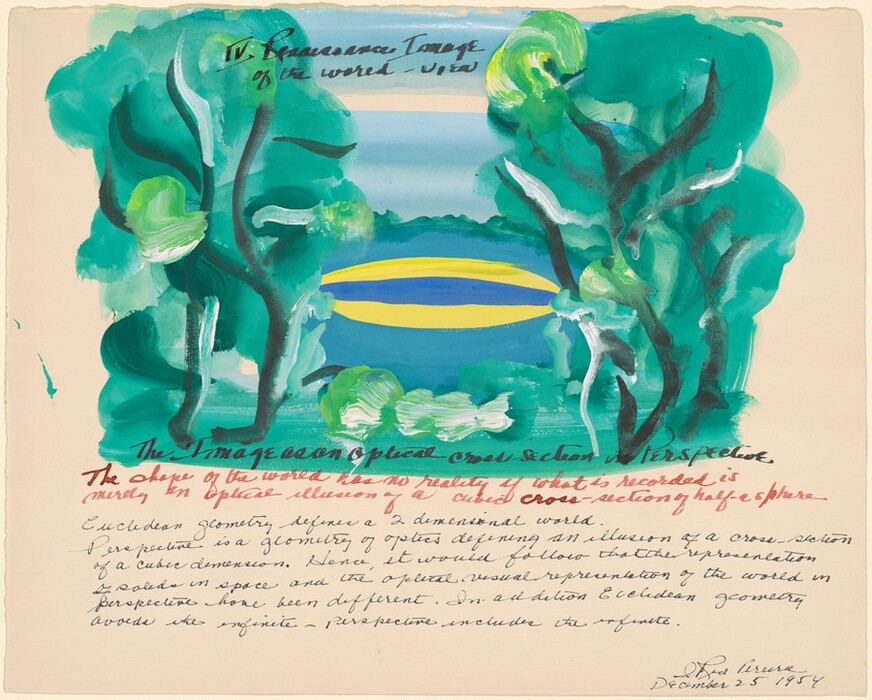 IV. Renaissance Image
of the world - view
The Image as an optical cross-section in Perspective
The shape of the world has no reality if what is recorded is
merely an optical illusion of a cubic cross-section of half a sphere
Euclidean geometry defines a 2 dimensional world.
Perspective is a geometry of optics defining an illusion of a cross-section
of a cubic dimension. Hence, it would follow that the representation
of solids in space and the optical visual representation of the world in
perspective have been different. In addition Euclidean geometry
avoids the infinite - Perspective includes the infinite.
I Rice Pereira
December 25 1954